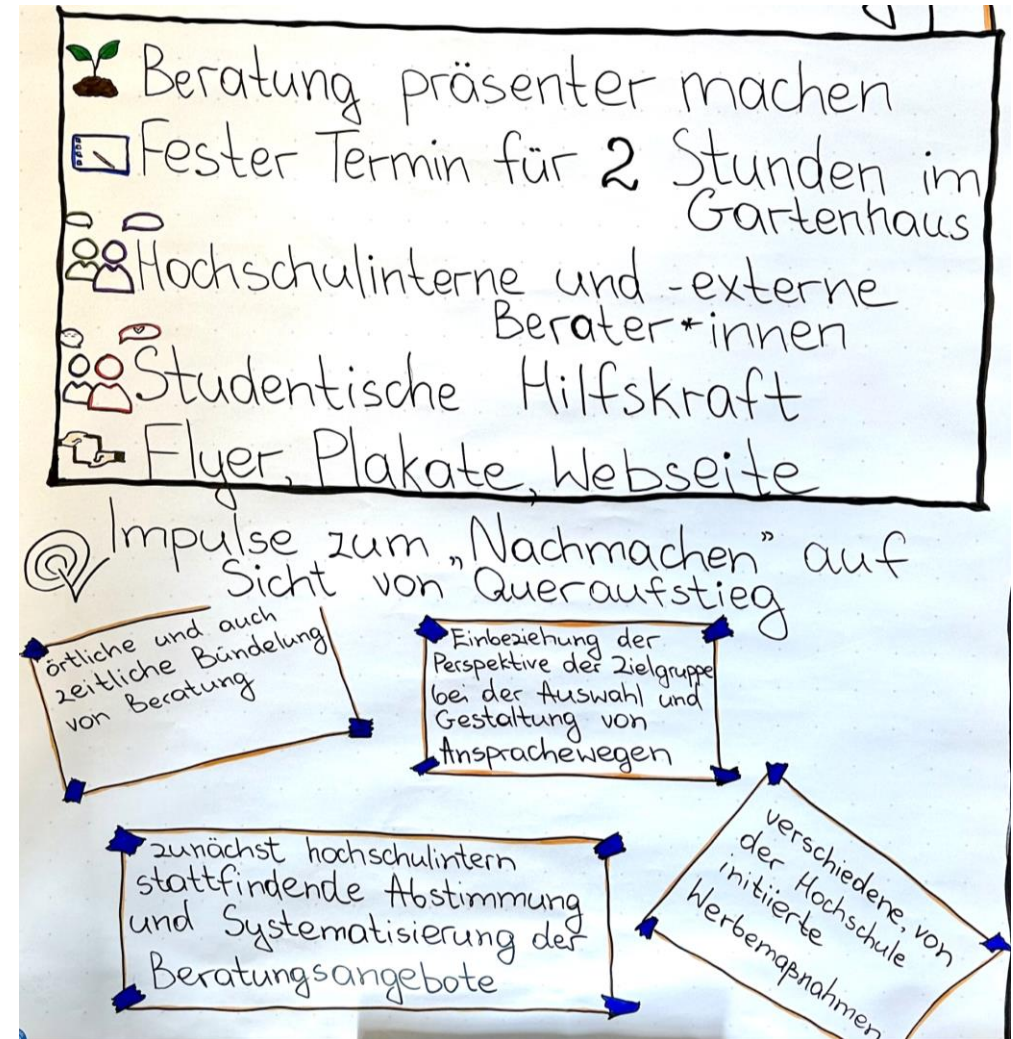 Beratung präsenter machen
Fester Termin für 2 Stunden im
Gartenhaus
Hochschulinterne und -externe
Berater*innen
Studentische Hilfskraft
Flyer, Plakate, Webseite
Impulse zum „Nachmachen" auf
Sicht von Queraufstieg
örtliche und auch
zeitliche Bündelung
von Beratung
Einbeziehung der
Perspektive der Zielgruppe
bei der Auswahl und
Gestaltung von
Ansprachewegen
zunächst hochschulintern
stattfindende Abstimmung
und Systematisierung der
Beratungsangebote
verschiedene, von
der Hochschule
initiierte
Werbemaßnahmen